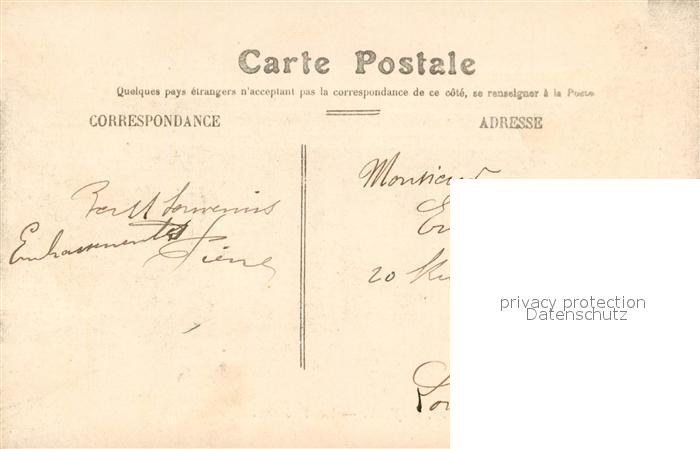 Carte Postale
Quelques pays étrangers n'acceptant pas la correspondance de ce côté, se renseigner à la Poste
CORRESPONDANCE
ADRESSE
Monsieur
souvenirs
Embrassements
Pierre
20
privacy protection
Datenschutz